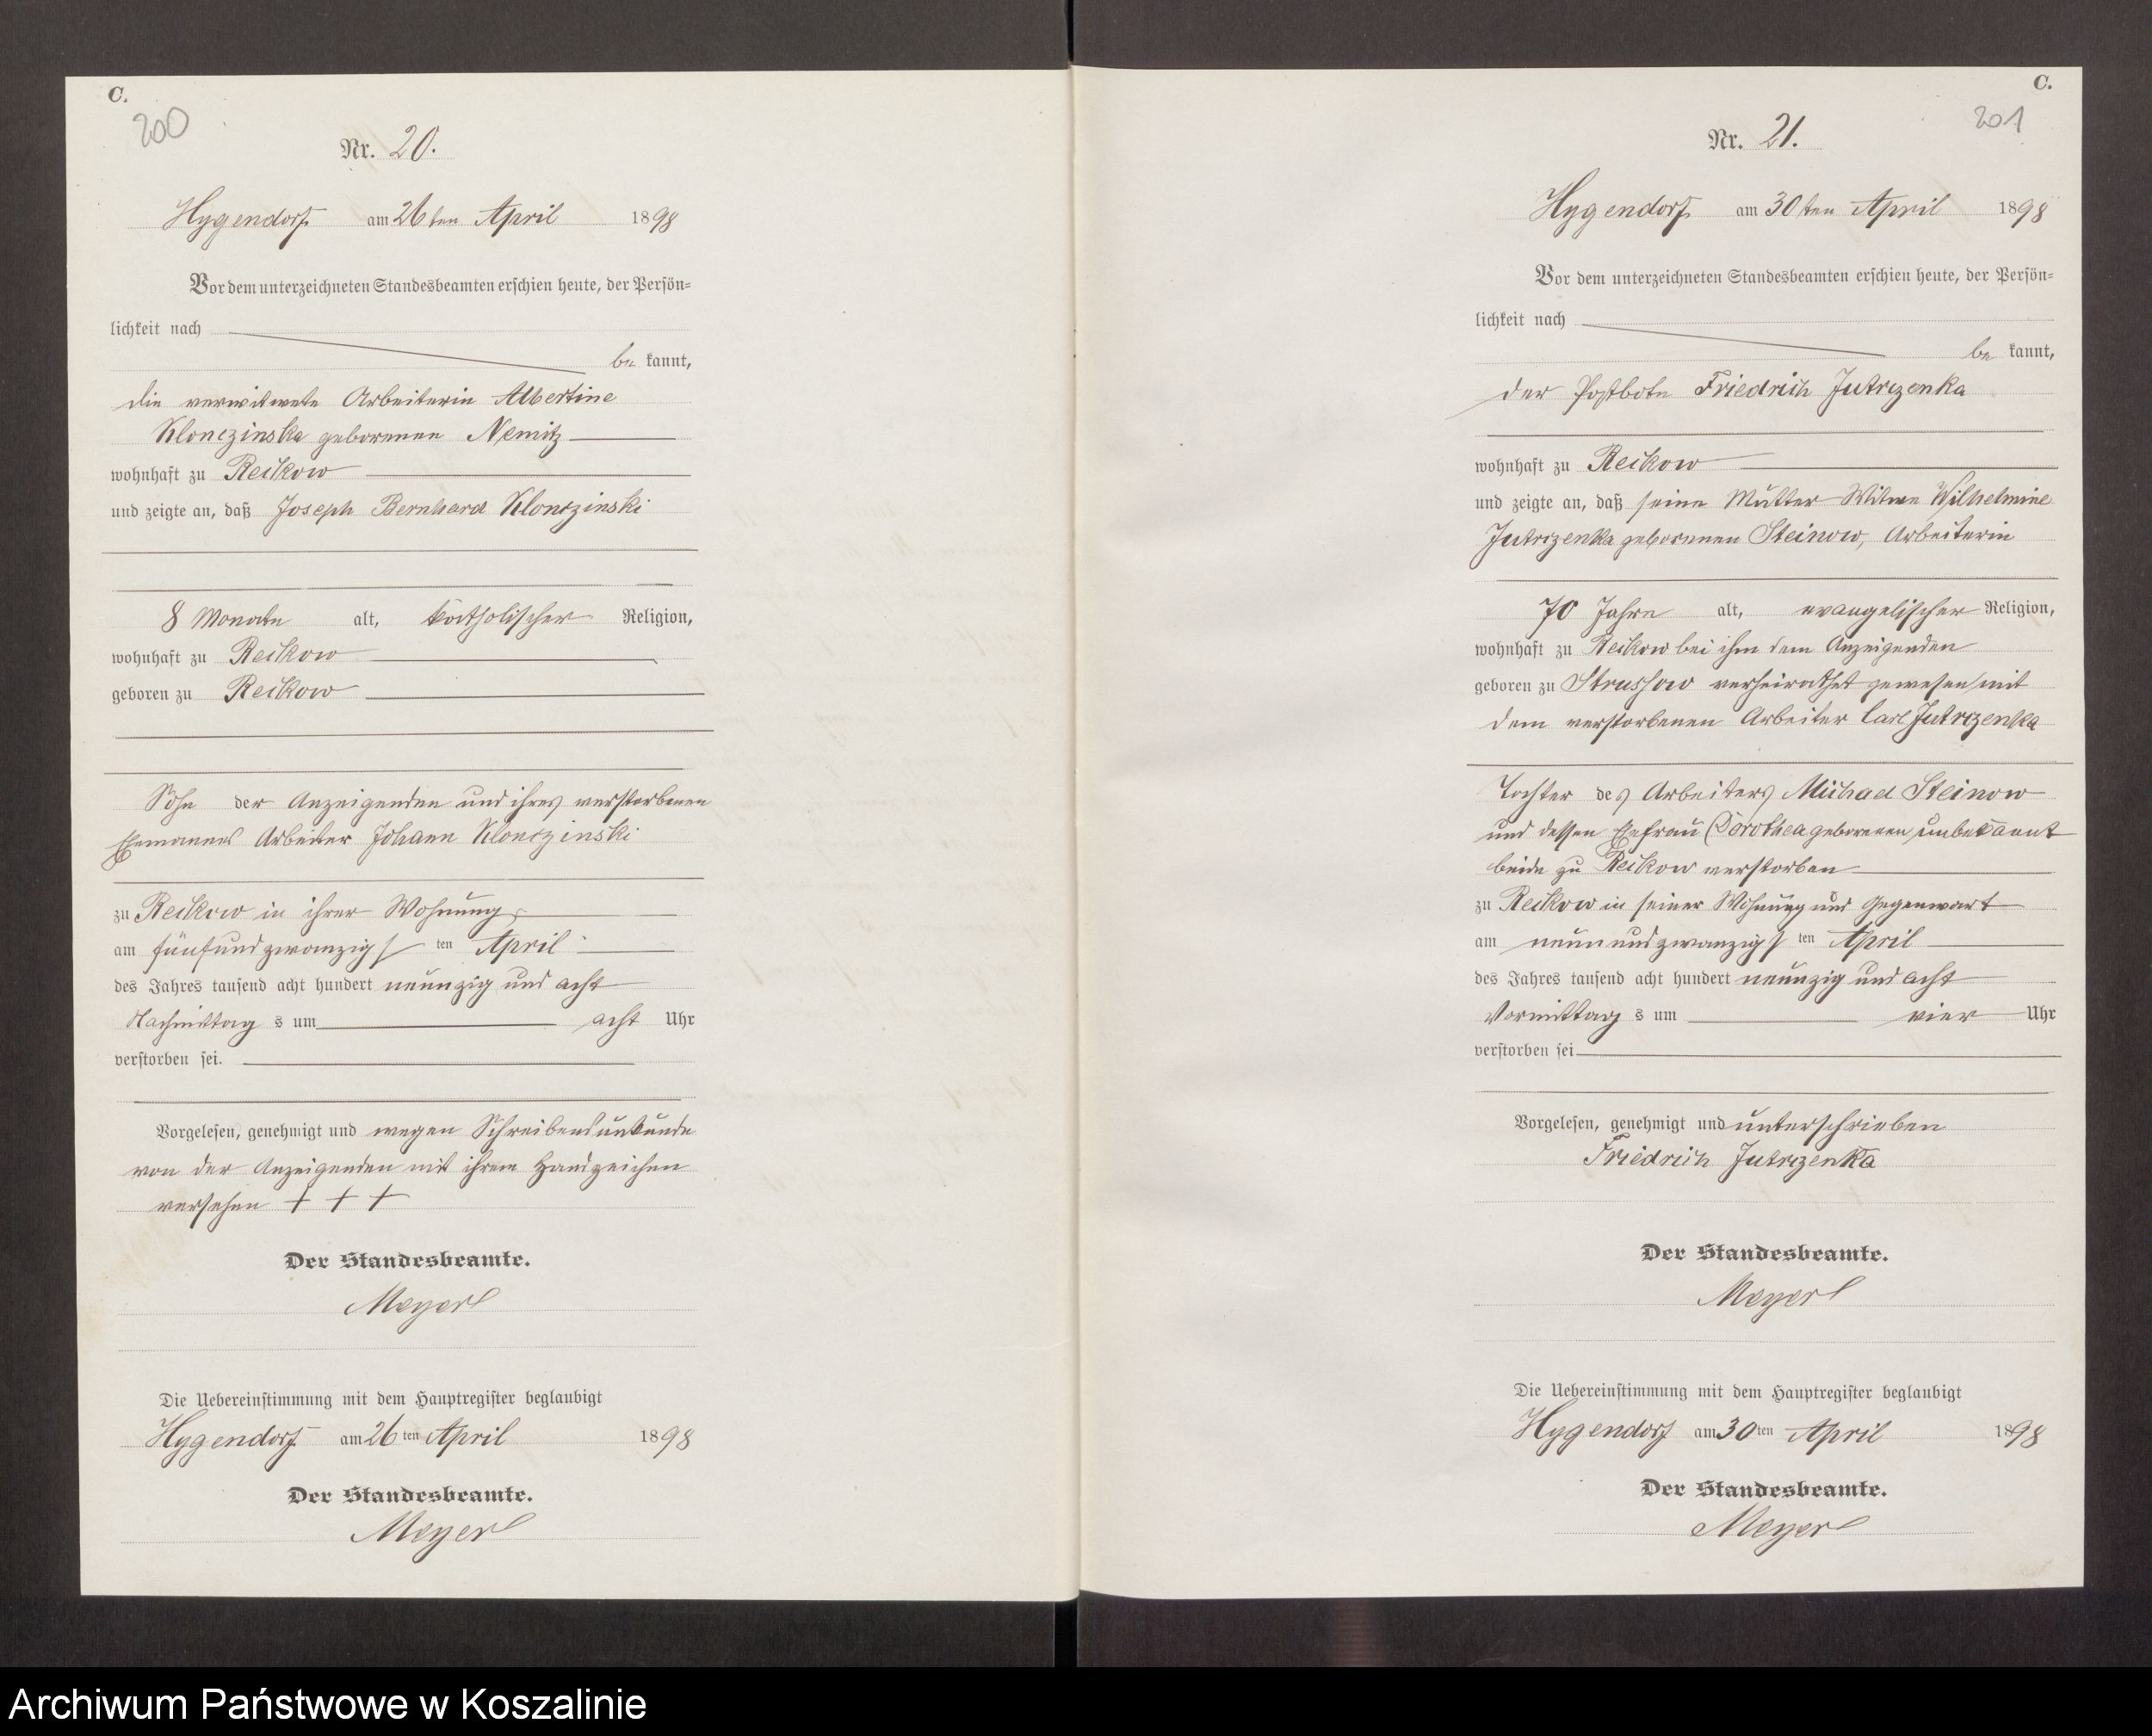 C.
200
Nr. 20.
Hygendorf am 26ten April 1898
Vor dem unterzeichneten Standesbeamten erschien heute, der Persön-
lichkeit nach
be kannt,
die verwitwete Arbeiterin Albertine
Klonczinska geborenen Nemitz
wohnhaft zu Reikow
und zeigte an, daß Joseph Bernhard Klonczinski
8 Monate alt, katholischer Religion,
wohnhaft zu Reikow
geboren zu Reikow
Sohn der Anzeigenden und ihres verstorbenen
Ehemannes Arbeiter Johann Klonczinski
zu Reikow in ihrer Wohnung
am fünfundzwanzigsten April
des Jahres tausend acht hundert neunzig und acht
Nachmittag s um acht Uhr
verstorben sei.
Vorgelesen, genehmigt und wegen Schreibensunkunde
von der Anzeigenden mit ihrem Handzeichen
versehen + + +
Der Standesbeamte.
Meyer
Die Uebereinstimmung mit dem Hauptregister beglaubigt
Hygendorf am 26 ten April 1898
Der Standesbeamte.
Meyer
C.
201
Nr. 21.
Hygendorf am 30ten April 1898
Vor dem unterzeichneten Standesbeamten erschien heute, der Persön-
lichkeit nach
be kannt,
der Postbote Friedrich Jutrczenka
wohnhaft zu Reikow
und zeigte an, daß seine Mutter Witwe Wilhelmine
Jutrczenka geborenen Steinow, Arbeiterin
70 Jahre alt, evangelischer Religion,
wohnhaft zu Reikow bei ihm dem Anzeigenden
geboren zu Strussow verheirathet gewesen mit
dem verstorbenen Arbeiter Carl Jutrczenka
Tochter des Arbeiters Michael Steinow
und dessen Ehefrau Dorothea geborenen unbekannt
beide zu Reikow verstorben
zu Reikow in seiner Wohnung und Gegenwart
am neunundzwanzigsten April
des Jahres tausend acht hundert neunzig und acht
Vormittag s um vier Uhr
verstorben sei
Vorgelesen, genehmigt und unterschrieben
Friedrich Jutrczenka
Der Standesbeamte.
Meyer
Die Uebereinstimmung mit dem Hauptregister beglaubigt
Hygendorf am 30 ten April 1898
Der Standesbeamte.
Meyer
Archiwum Państwowe w Koszalinie